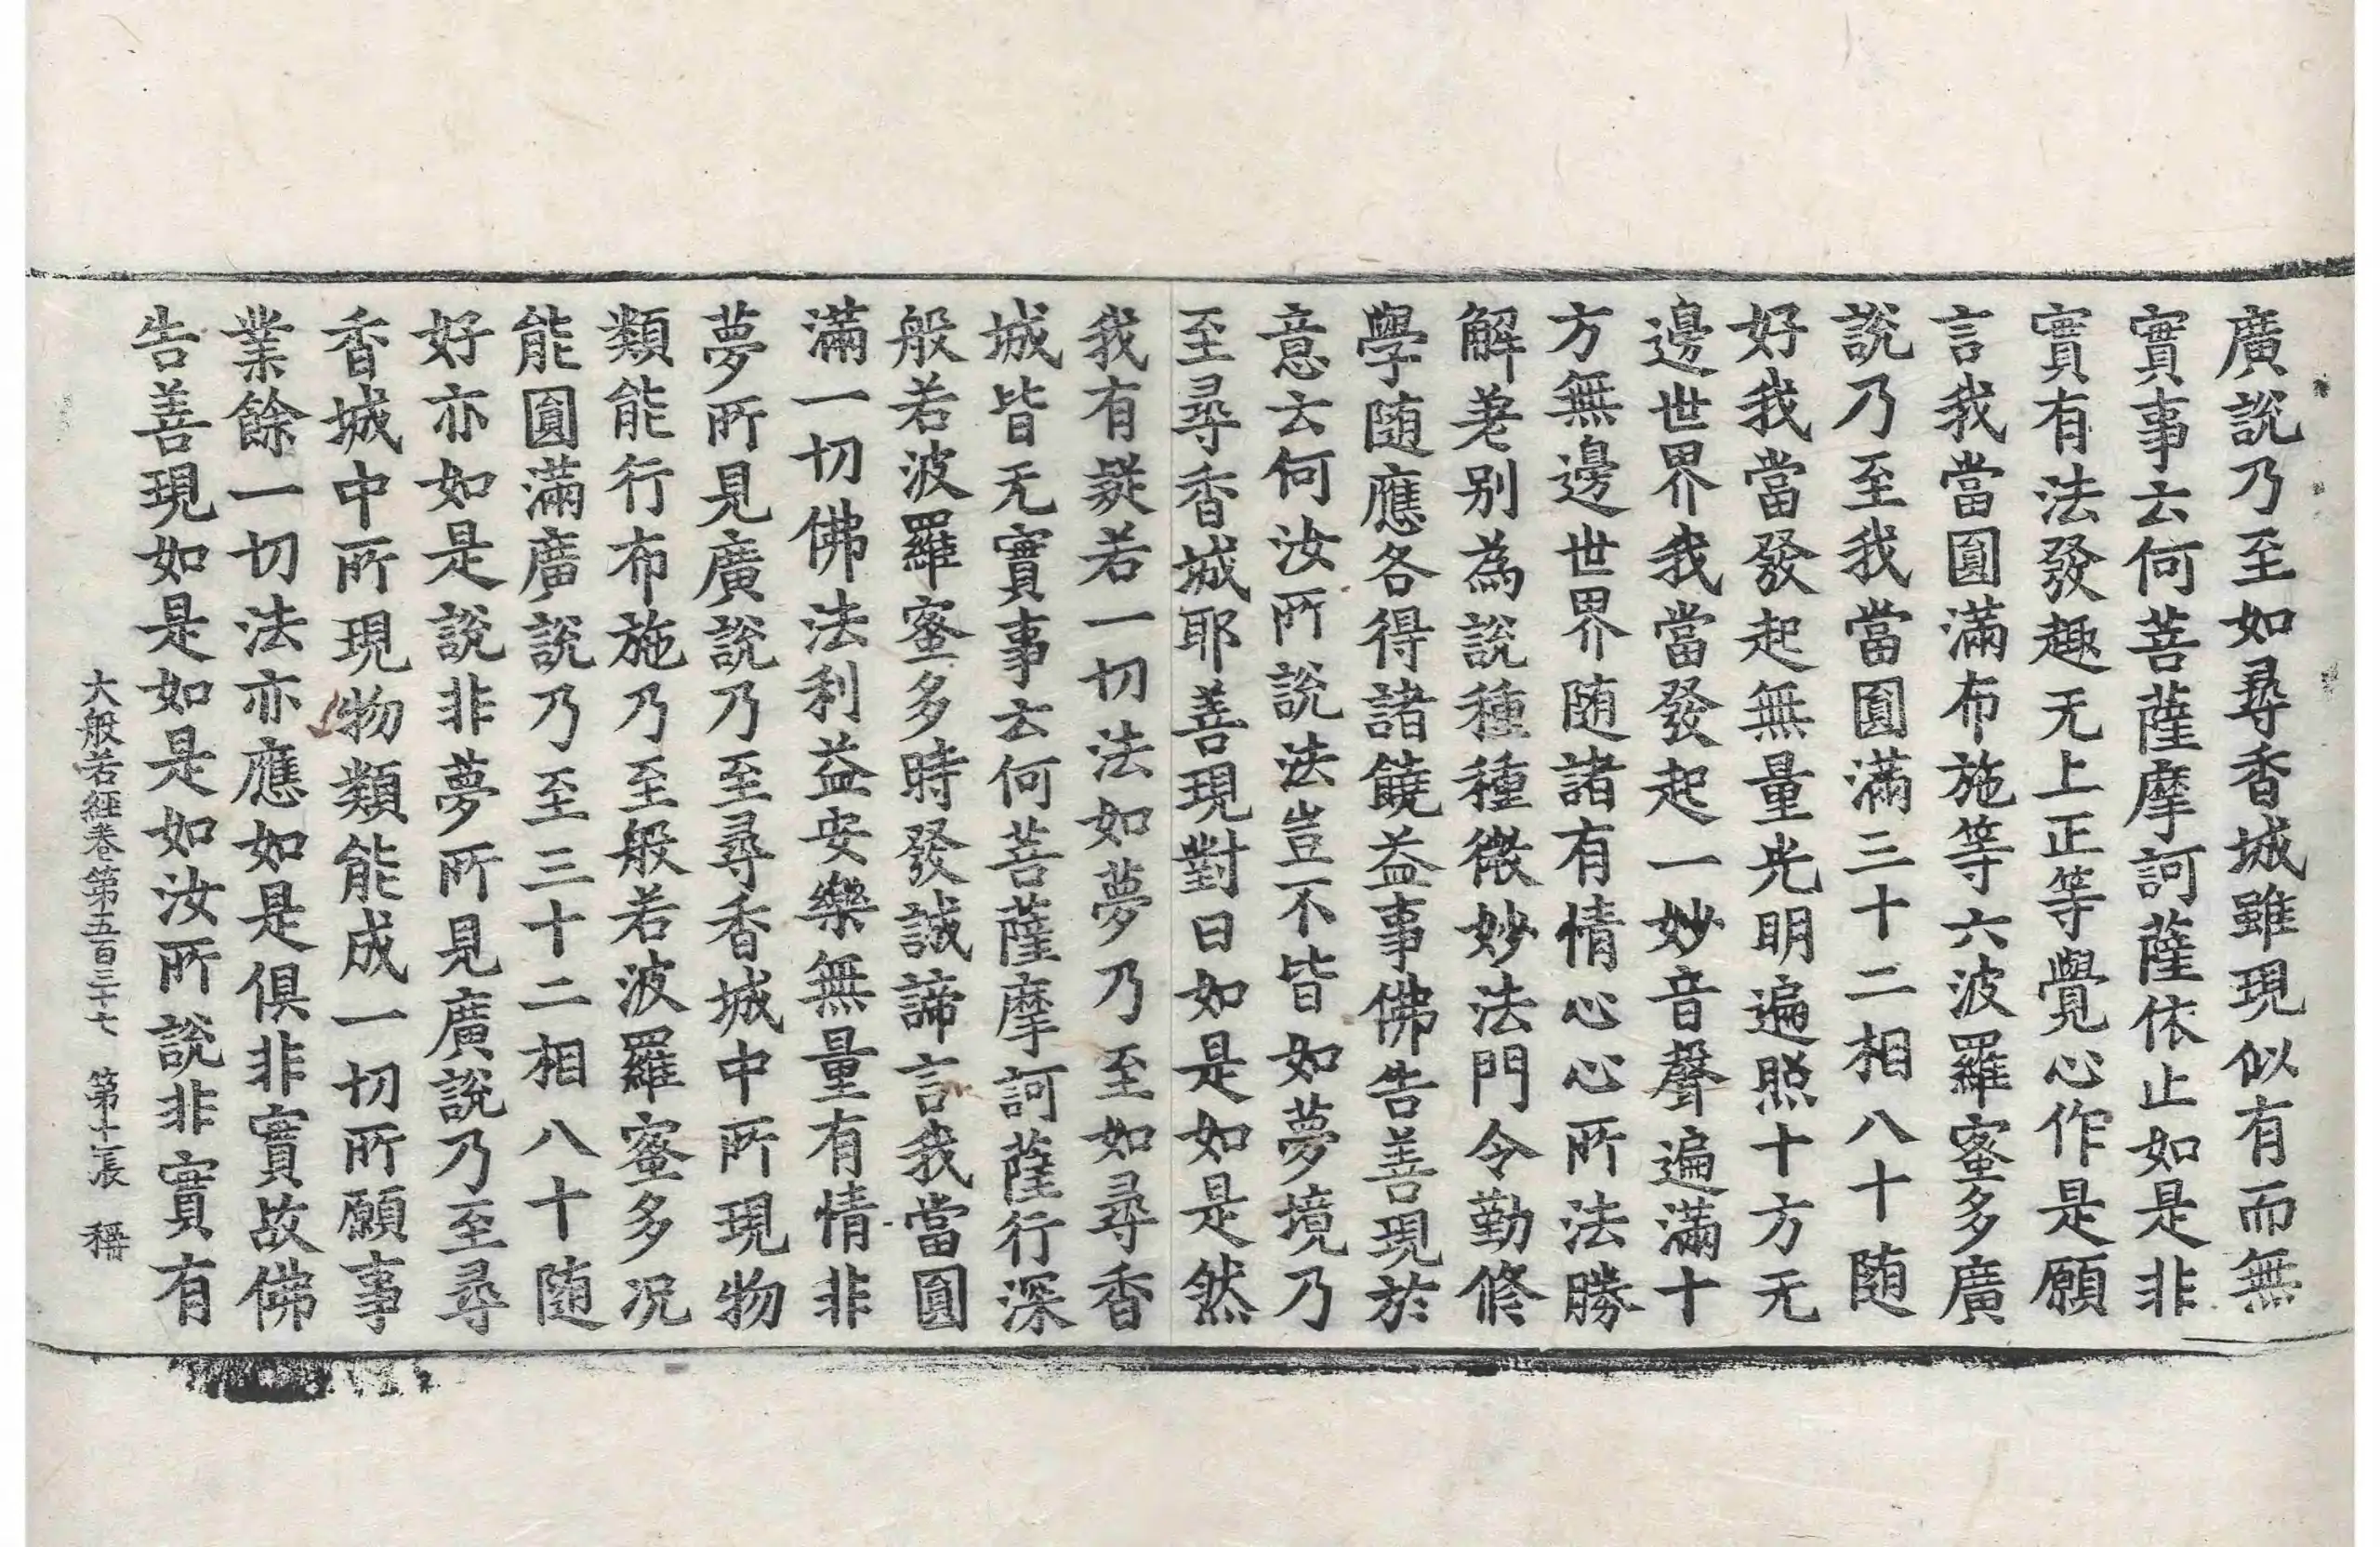 廣說乃至如尋香城雖現似有而無
實事云何菩薩摩訶薩依止如是非
實有法發趣无上正等覺心作是願
言我當圓滿布施等六波羅蜜多廣
說乃至我當圓滿三十二相八十随
好我當發起無量光明遍照十方无
邊世界我當發起一妙音聲遍滿十
方無邊世界随諸有情心心所法勝
解差别為說種種微妙法門令勤修
學随應各得諸饒益事佛告善現於
意云何汝所說法豈不皆如夢境乃
至尋香城耶善現對曰如是如是然
我有疑若一切法如夢乃至如尋香
城皆无實事云何菩薩摩訶薩行深
般若波羅蜜多時發誠諦言我當圓
滿一切佛法利益安樂無量有情非
夢所見廣說乃至尋香城中所現物
類能行布施乃至般若波羅蜜多况
能圓滿廣說乃至三十二相八十随
好亦如是說非夢所見廣說乃至尋
香城中所現物類能成一切所願事
業餘一切法亦應如是俱非實故佛
告善現如是如是如汝所說非實有
大般若經卷第五百三十七 第十張 稱